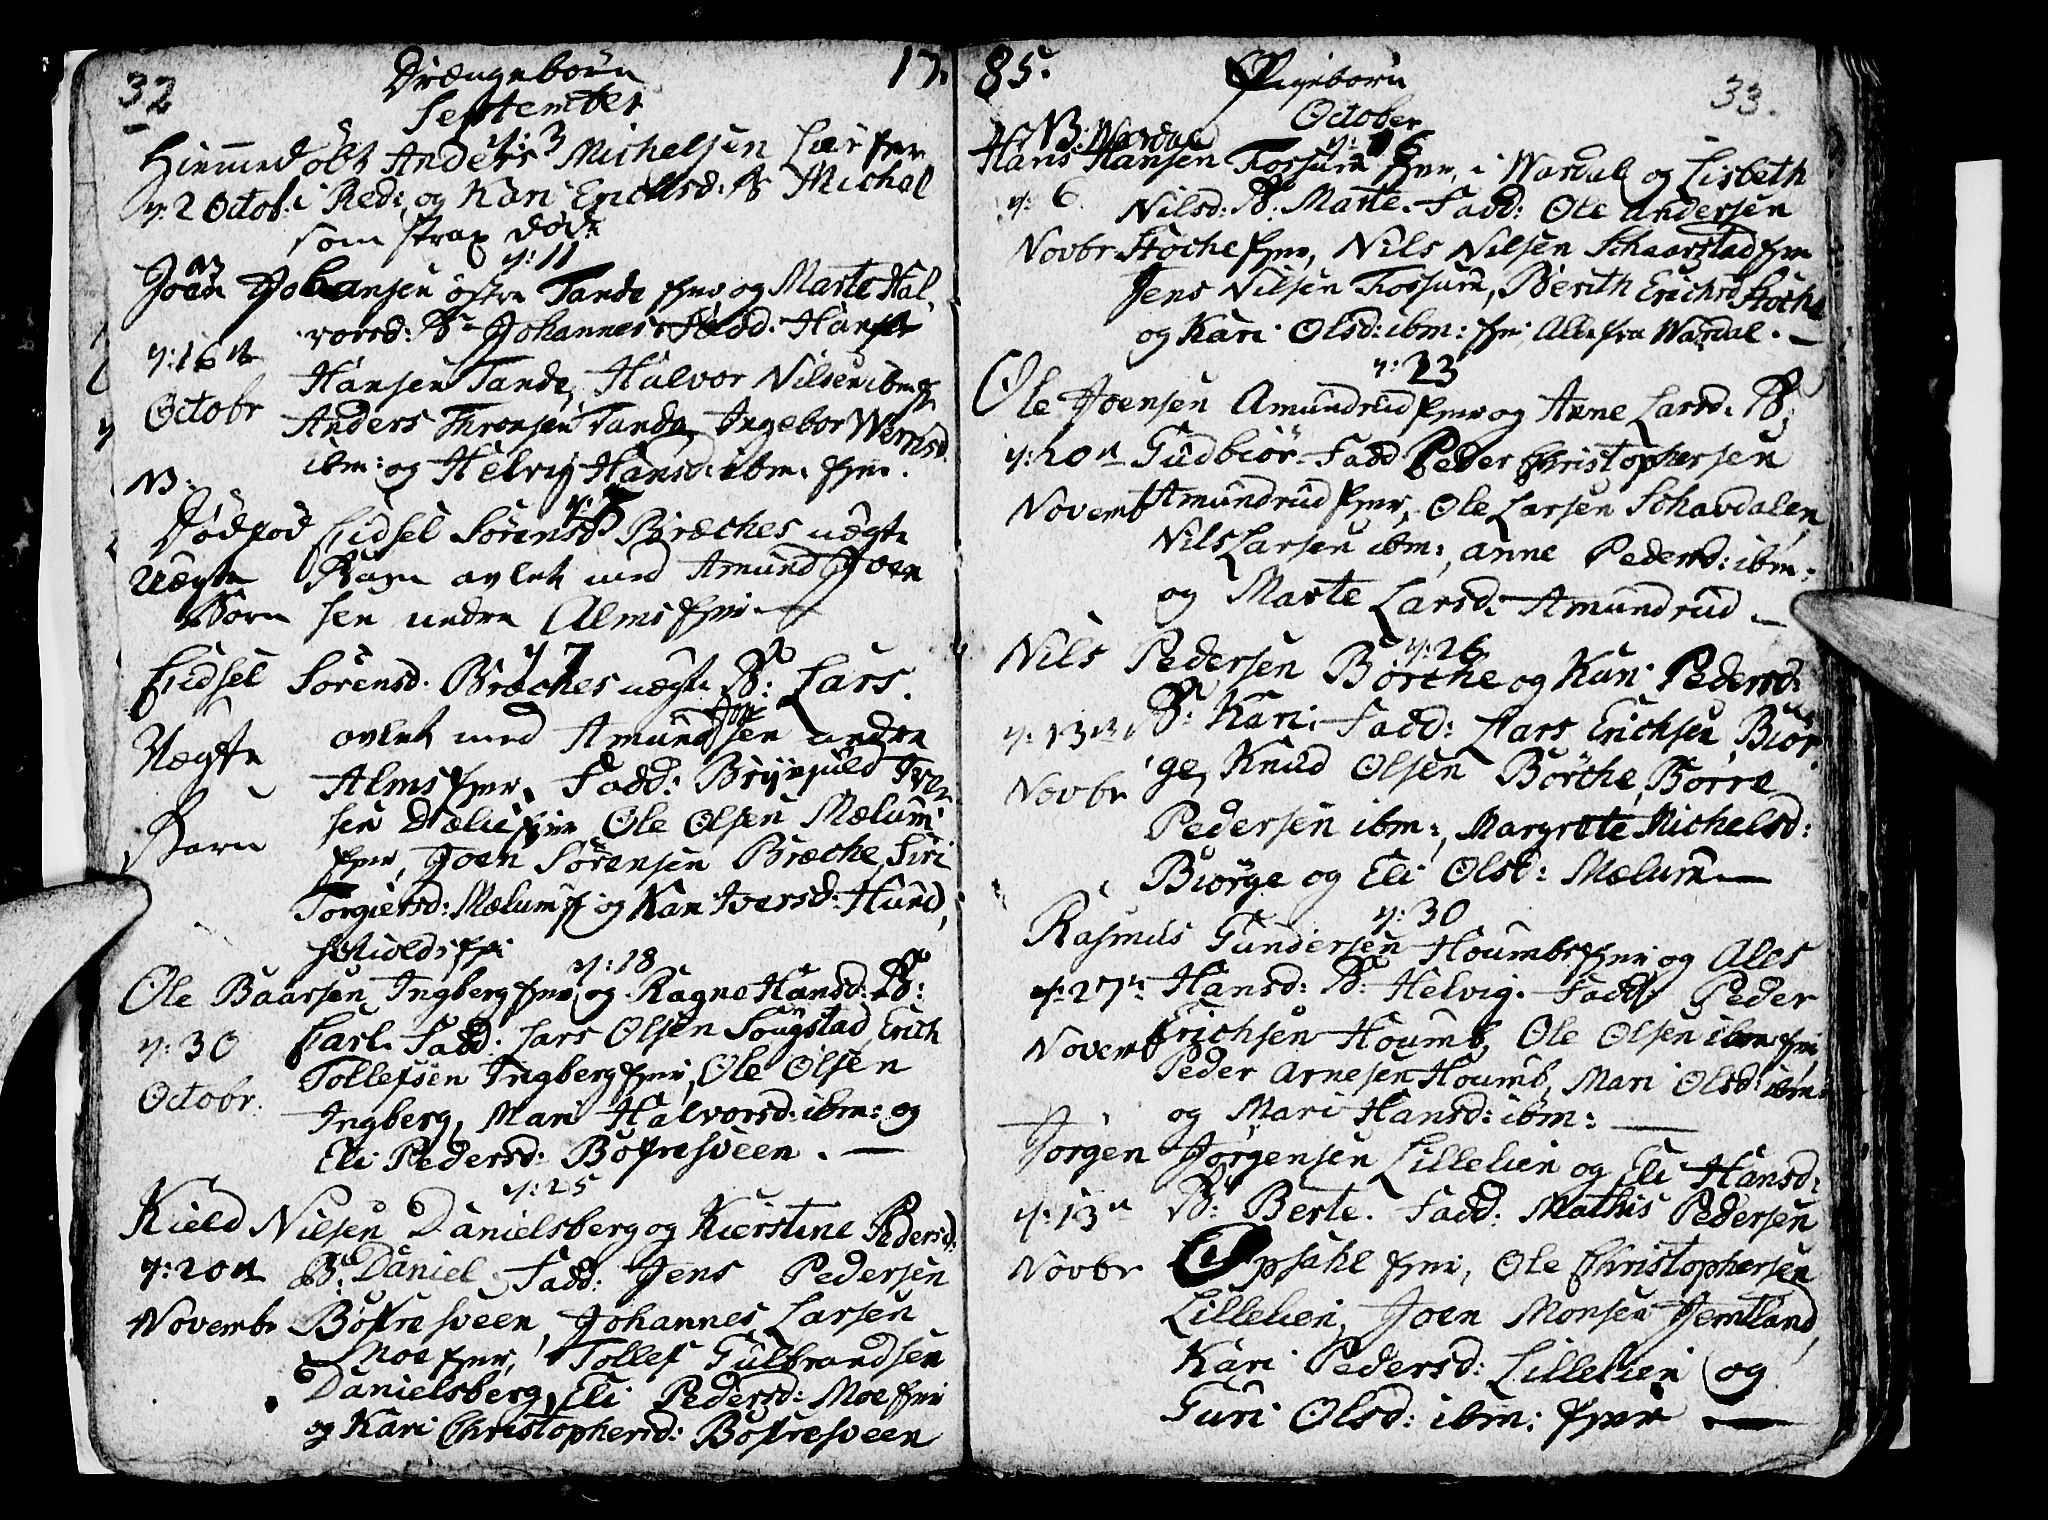 32 Drængebörn 17.
September
d: 3
Hiemmedöbt Anders Michelsen Lie fmr
d: 2 Octob: i Red: og Kari Erichsd: B Michal
som strax döde
d: 11
NB
Joen Johansen östre Tande fmr og Marte Hal,
vorsd: B: Johannes Fadd: Hans
d: 16 n Hansen Tande, Halvor Nilsen ibm
Octobr Anders Thronsen Tande, Ingebor
ibm: og Helvig Hansd: ibm: fmr.
NB:
Dödfød Eidsel Sörensd Bræches uægte
Uægte Barn avlet med Amund Joen
Börn sen nedre Alms fmr
d 7
Eidsel Sörensd. Bræches uægte B: Lars.
Uægte avlet med Amund Joensen nedre
Alms fmr. Fadd: Brynjuld Iver
Barn sen Dælie fmr Ole Olsen Mælum
fmr, Joen Sörensen Bræche, Siri
Torgiersd: Mælum og Kari Iversd: Hund,
schiolds fmr
d: 18
Ole Baarsen Ingberg fmr og Ragne Hansd: B:
d: 30 Carl. Fadd: Lars Olsen Sougstad, Erich
Octobr. Tollefsen Ingberg fmr, Ole Olsen
Ingberg, Mari Halvorsd: ibm: og
Eli Pedersd: Bofresveen. —
d: 25
Kield Nilsen Danielsberg og Kierstine Pedersd:
d: 20 n B: Daniel, Fadd: Jens Pedersen
Novembr Bofresveen, Johannes Larsen
Moe fmr, Tollef Gulbrandsen
Danielsberg, Eli Pedersd: Moe fmr
og Kari Christophersd: Bofresveen
85. Pigebörn 33.
October
NB: Wardal d: 16
Hans Hansen Fossum fmr, i Wardal og Lisbeth
d: 6 Nilsd: B: Marte. Fadd: Ole Andersen
Novbr Stoche fmr, Nils Nilsen Schaarstad fmr
Jens Nilsen Fossum, Berith Erichsd Stoche
og Kari Olsd: ibm: fmr Alle fra Wardal. —
d: 23
Ole Joensen Amundrud fmr og Anne Larsd. B:
d: 20 n Gudbiör. Fadd Peder Christophersen
Novemb Amundrud fmr, Ole Larsen Schavdalen,
Nils Larsen ibm:, Anne Pedersd: ibm:
og Marte Larsd. Amundrud —
d: 26
Nils Pedersen Börche og Kari Pedersd:
d: 13 n B: Kari. Fadd: Lars Erichsen Biör
Novbr ge, Knud Olsen Börche, Börre
Pedersen ibm:, Margrete Michelsd:
Biörge og Eli Olsd: Mælum —
d: 30
Rasmus Gundersen Houmbs fmr og Ales
d: 27 n Hansd: B: Helvig. Fadd: Peder
Novemb Erichsen Houmb, Ole Olsen ibm fmr
Peder Arnesen Houmb, Mari Olsd: ibm:
og Mari Hansd: ibm: —
Jorgen Jörgensen Lillelien og Eli Hansd:
d: 13 n B: Berte. Fadd: Mathis Pedersen
Novbr Opsahl fmr, Ole Christophersen
Lillelien, Joen Monsen Jemtland,
Kari Pedersd: Lillelien og
Guri Olsd: ibm: fmr —